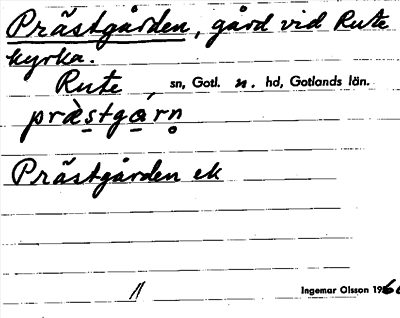 Prästgården, gård vid Rute
kyrka.
Rute, sn, Gotl. n. hd, Gotlands län.
prä̀s̲tgá̲rn̥
Prästgården ek
//
Ingemar Olsson 1960